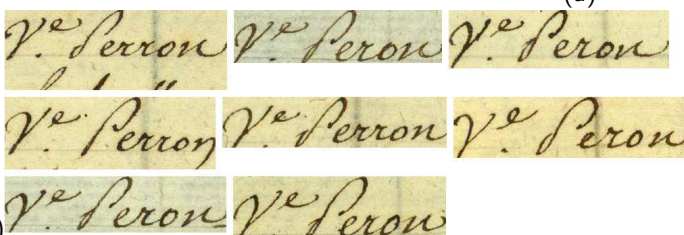 Ve. Perron Ve. Peron Ve. Peron
Ve. Perron Ve. Perron Ve. Peron
Ve. Peron Ve. Peron